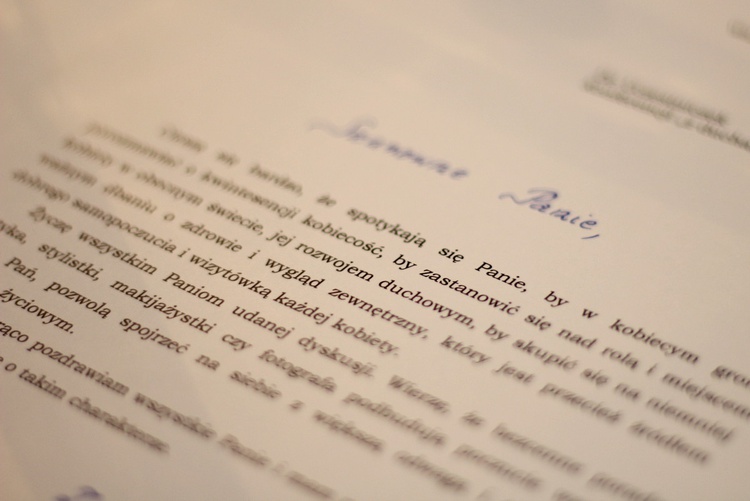 Szanowne Panie,
Cieszę się bardzo, że spotykają się Panie, by w kobiecym gronie
porozmawiać o kwintesencji kobiecość, by zastanowić się nad rolą i miejscem
kobiety w obecnym świecie, jej rozwojem duchowym, by skupić się na niemniej
ważnym dbaniu o zdrowie i wygląd zewnętrzny, który jest przecież źródłem
dobrego samopoczucia i wizytówką każdej kobiety.
Życzę wszystkim Paniom udanej dyskusji. Wierzę, że bezcenne
stylistki, makijażystki czy fotografa podbudują poczucie
Pań, pozwolą spojrzeć na siebie z większą odwagą i
życiowym.
pozdrawiam wszystkie Panie i
o takim charakterze.